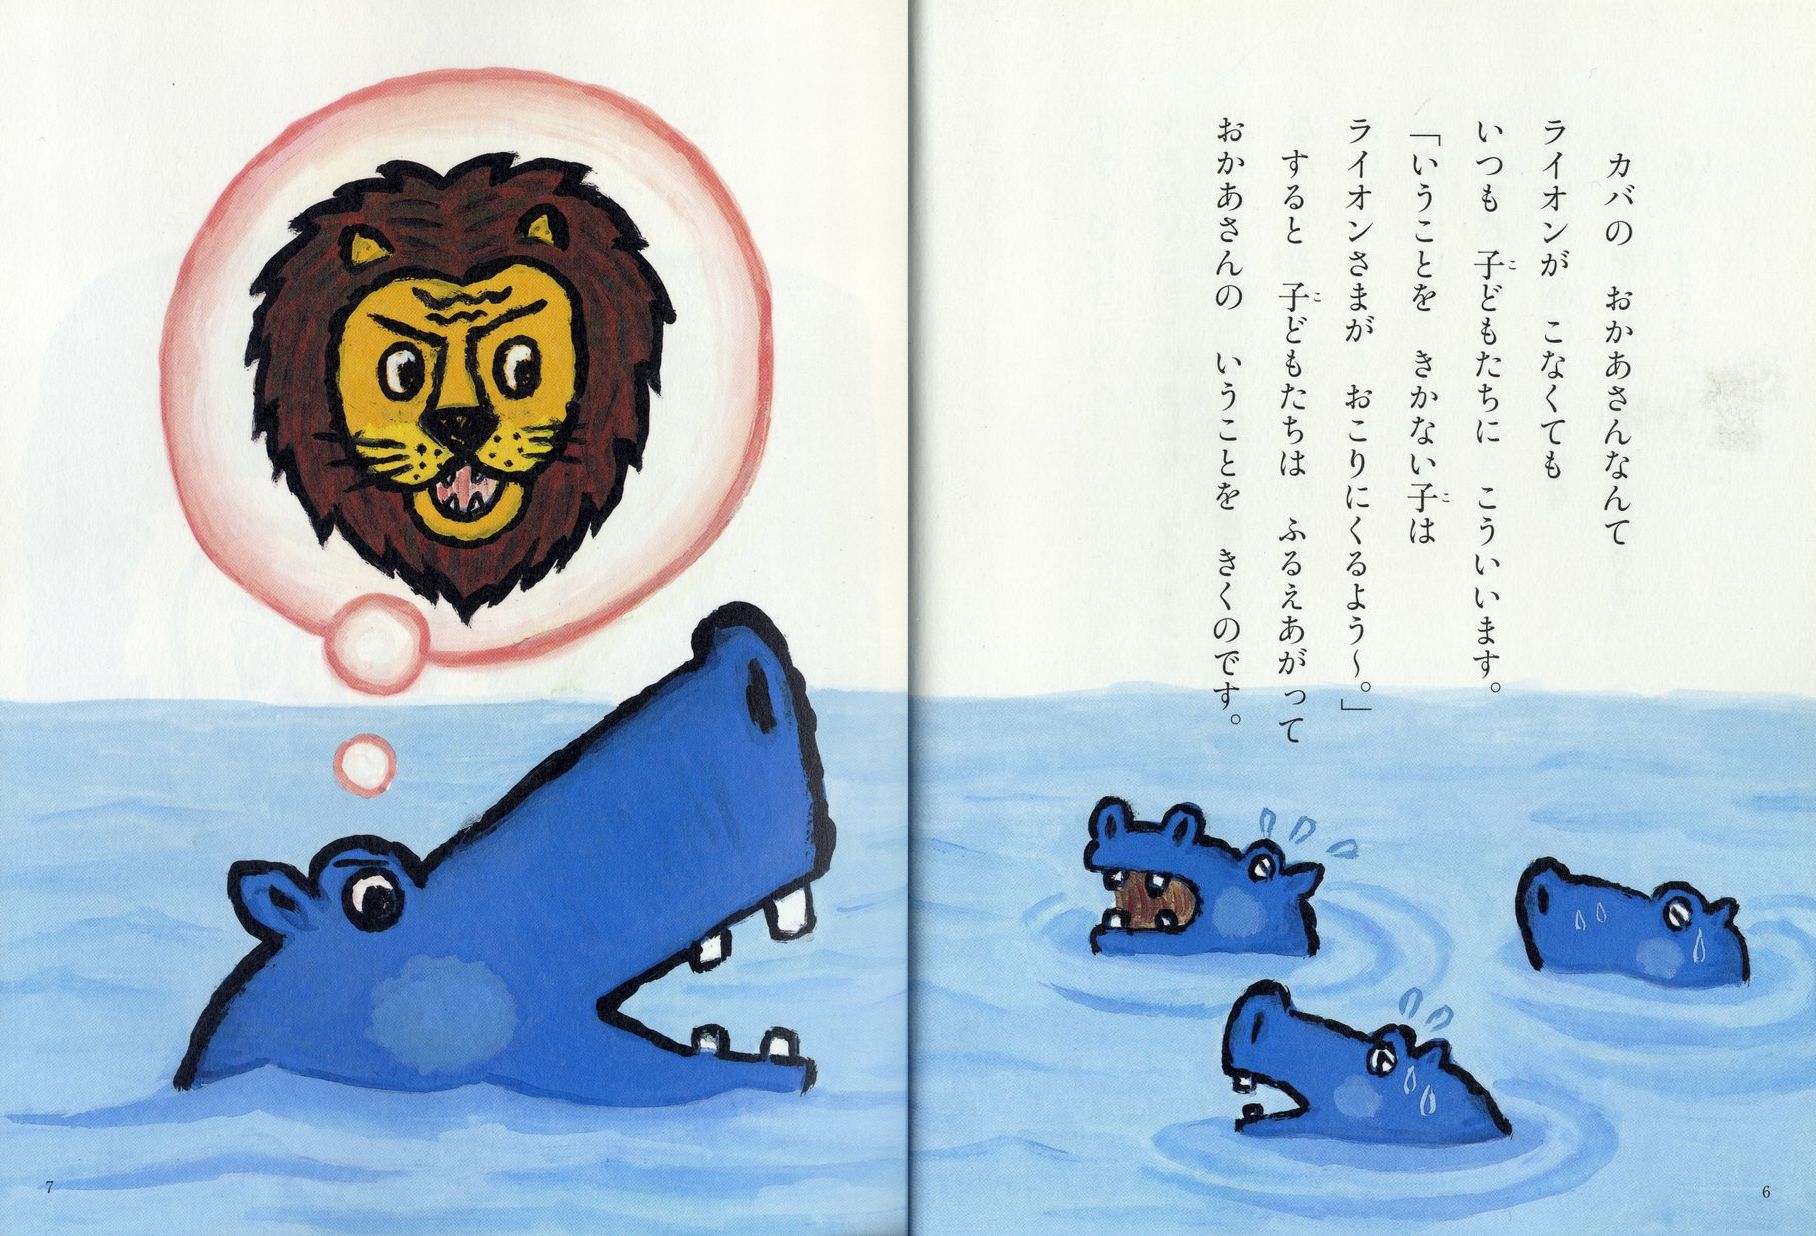 カバの　おかあさんなんて
ライオンが　こなくても
いつも　子どもたちに　こういいます。
「いうことを　きかない子は
ライオンさまが　おこりにくるよう〜。」
すると　子どもたちは　ふるえあがって
おかあさんの　いうことを　きくのです。
7
6